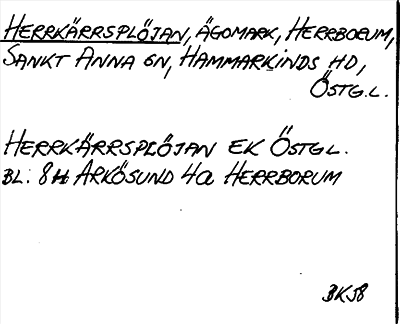 HERRKÄRRSPLÖJAN, ÄGOMARK, HERRBORUM,
SANKT ANNA SN, HAMMARKINDS HD,
ÖSTG.L.
HERRKÄRRSPLÖJAN EK ÖSTGL.
BL. 8H ARKÖSUND 4a HERRBORUM
BK58